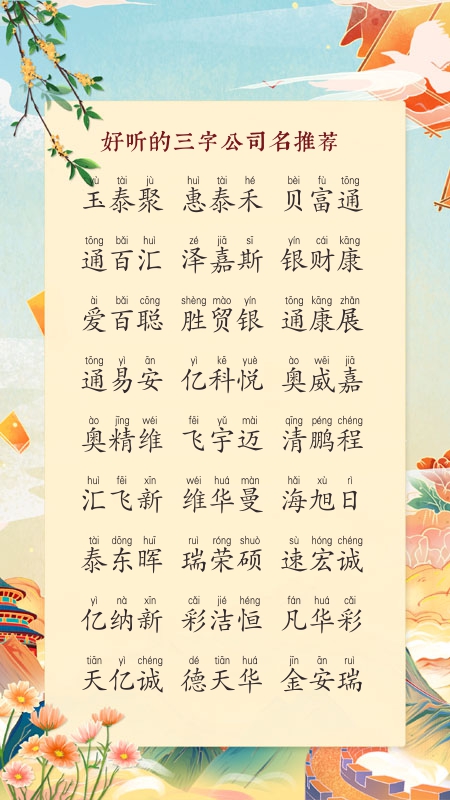 好听的三字公司名推荐
yù tài jù huì tài hé bèi fù tōng
玉泰聚 惠泰禾 贝富通
tōng bǎi huì zé jiā sī yín cái kāng
通百汇 泽嘉斯 银财康
ài bǎi cōng shèng mào yín tōng kāng zhǎn
爱百聪 胜贸银 通康展
tōng yì ān yì kē yuè ào wēi jiā
通易安 亿科悦 奥威嘉
ào jīng wéi fēi yǔ mài qīng péng chéng
奥精维 飞宇迈 清鹏程
huì fēi xīn wéi huá màn hǎi xù rì
汇飞新 维华曼 海旭日
tài dōng huī ruì róng shuò sù hóng chéng
泰东晖 瑞荣硕 速宏诚
yì nà xīn cǎi jié héng fán huá cǎi
亿纳新 彩洁恒 凡华彩
tiān yì chéng dé tiān huá jīn ān ruì
天亿诚 德天华 金安瑞